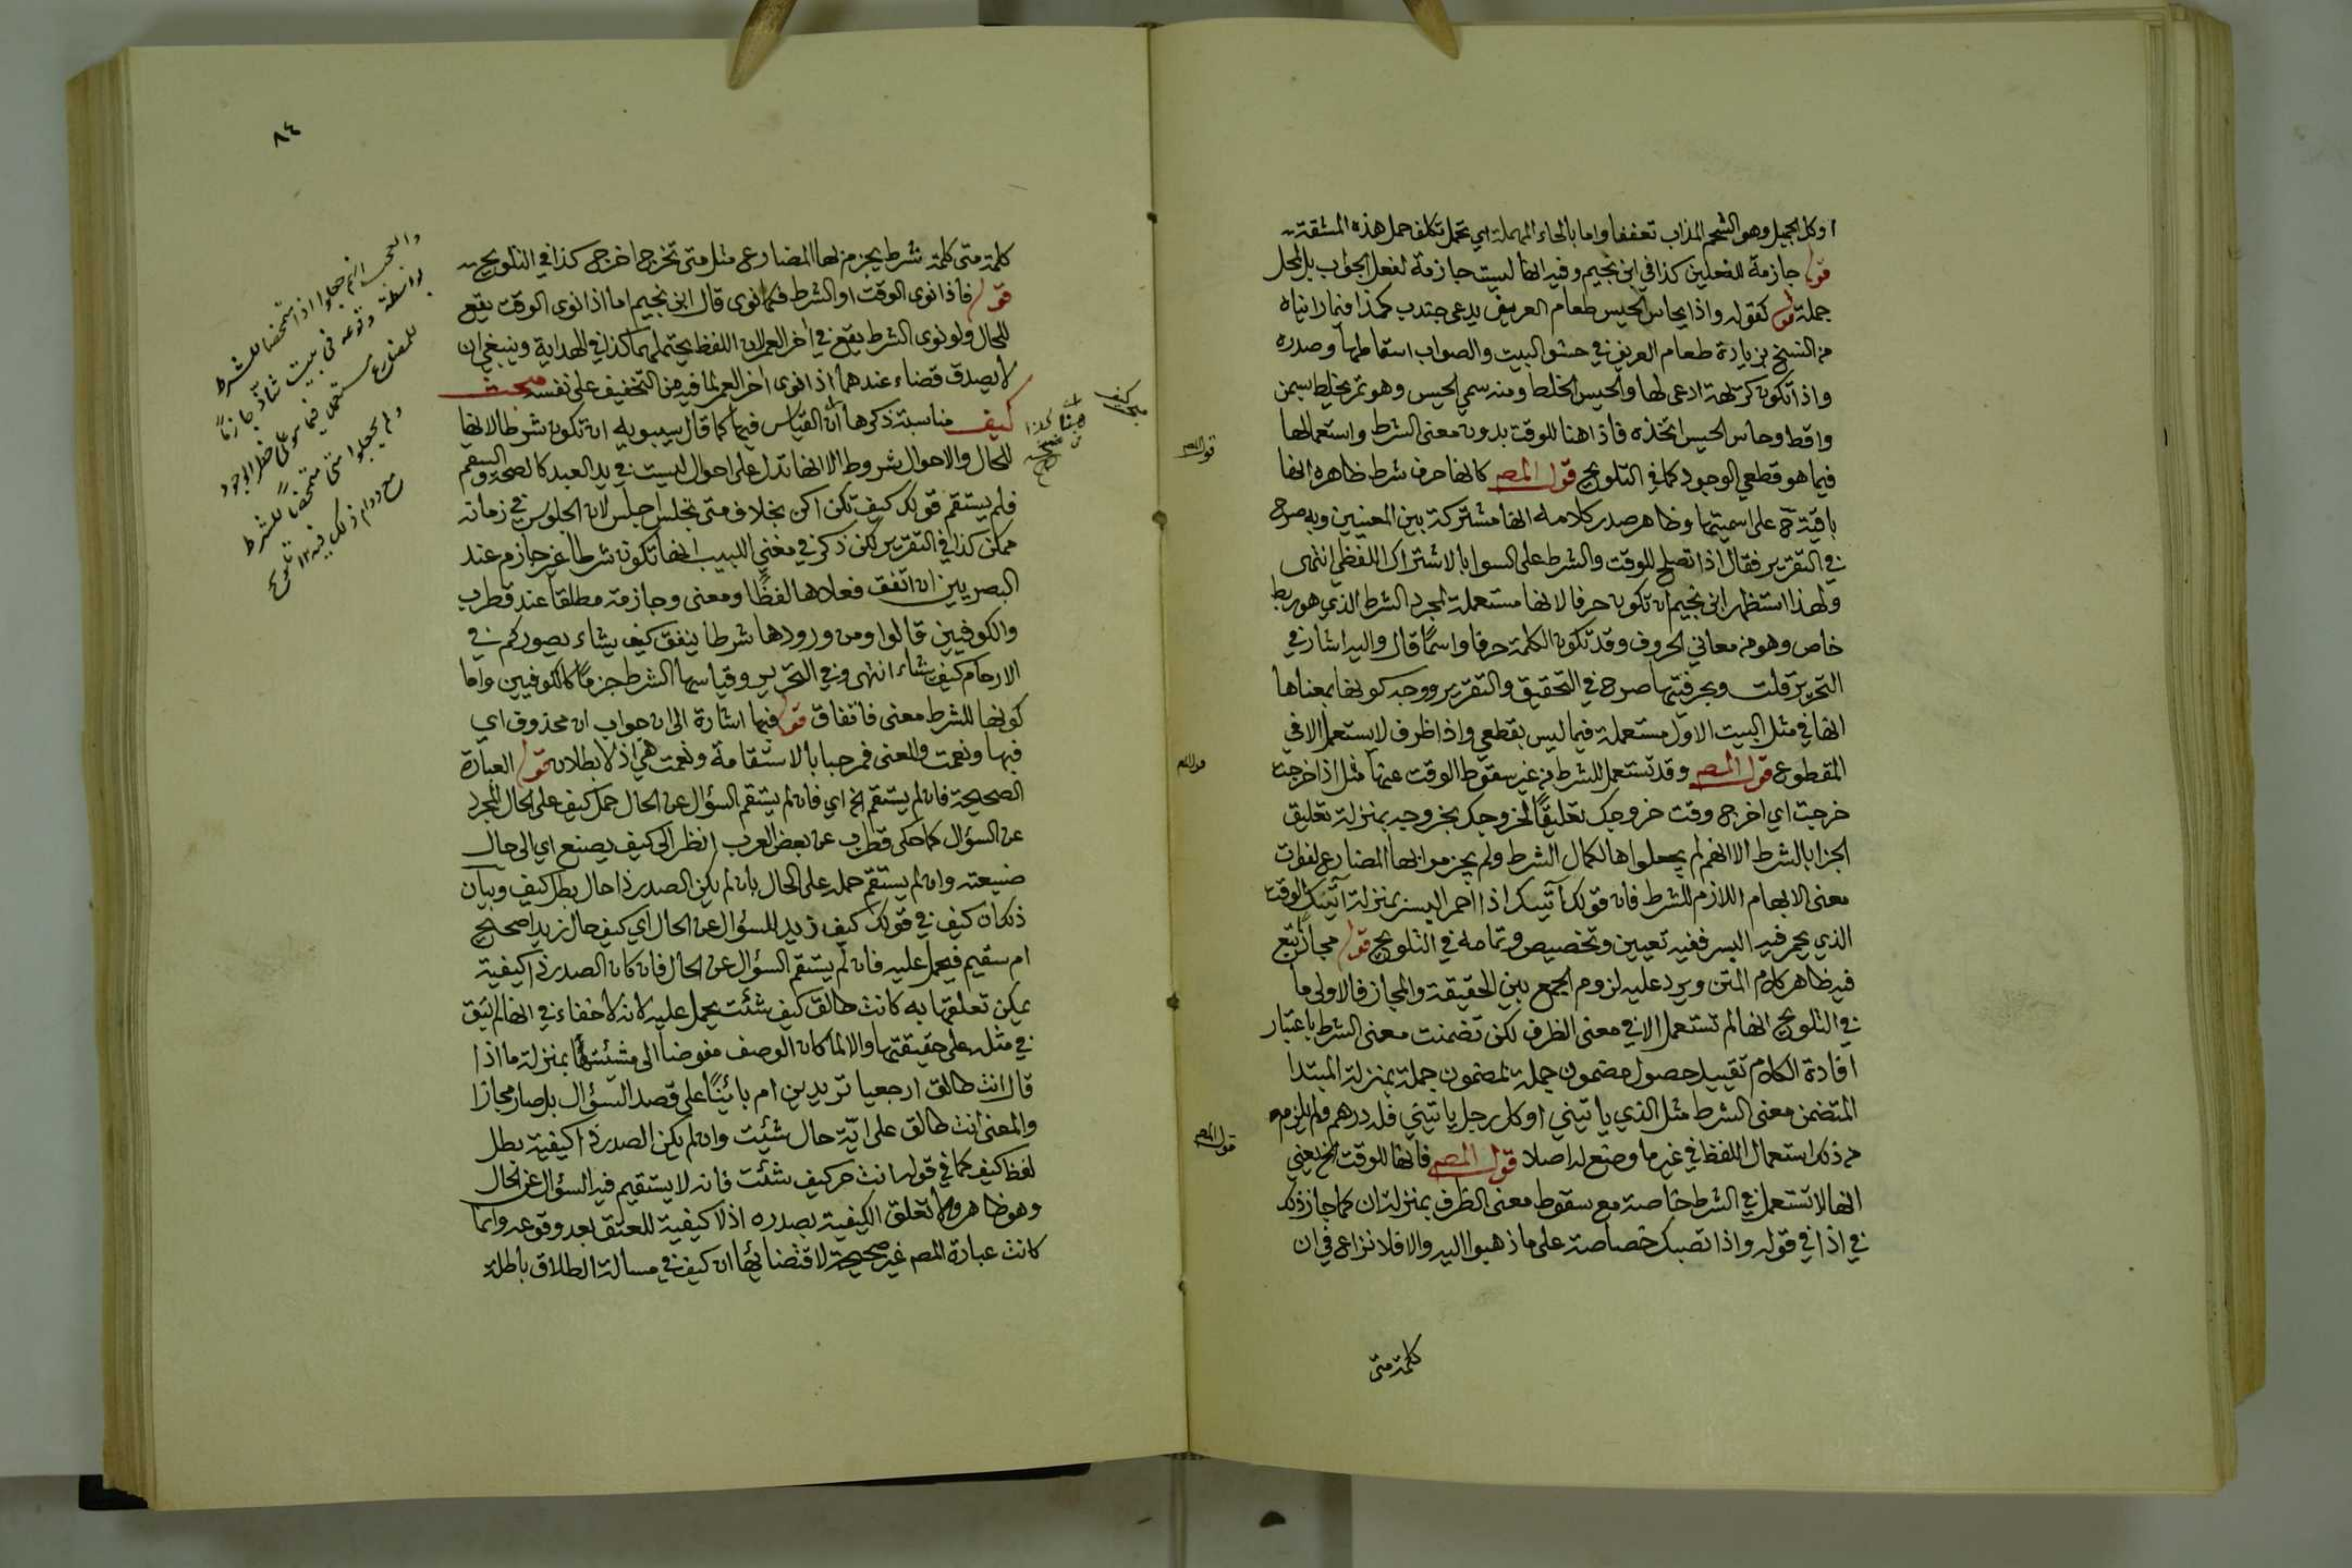 اوكل الجميل وهو الشحم المذاب تعففا واما بالحاء المهملة اي تحمل تكلف حمل هذه المشقة
قوله جازمة للفعلين كذا في ابن نجيم وفيه انها ليست جازمة لفعل الجواب بل لمحل
جملة قوله كقوله واذا يحاس الحيس طعام العريف يدعى جندب كهذا فيما رايناه
من النسخ بزيادة طعام العريف في حشو البيت والصواب اسقاطها وصدره
واذا تكون كريهة ادعى لها والحيس الخلط ومنه سمي الحيس وهو تمر يخلط بسمن
واقط وحاس الحيس اتخذه فاذا هنا للوقت بدون معنى الشرط واستعمالها
فيما هو قطعي الوجود كما في التلويح قول المصـ كانها حرف شرط ظاهره انها
باقية ح على اسميتها وظاهر صدر كلامه انها مشتركة بين المعنيين وبه صرح
في التقرير فقال اذا تصلح للوقت والشرط على السوا بالاشتراك اللفظي انتهى
ولهذا استظهر ابن نجيم ان تكون حرفا لانها مستعملة لمجرد الشرط الذي هو ربط
خاص وهو من معاني الحروف وقد تكون الكلمة حرفا واسما قال واليه اشار في
التحرير قلت وبحرفيتها صرح في التحقيق والتقرير ووجه كونها بمعناها
انها في مثل البيت الاول مستعملة فيما ليس بقطعي واذا ظرف لا يستعمل الا في
المقطوع قول المصـ وقد تستعمل للشرط من غير سقوط الوقت عنها مثل اذا خرجت
خرجت اي اخرج وقت خروجك تعليقا لخروجك بخروجه بمنزلة تعليق
الجزا بالشرط الا انهم لم يجعلوها لكمال الشرط ولم يجزموا بها المضارع لفوات
معنى الابهام اللازم للشرط فان قولك آتيك اذا احمر البسر بمنزلة آتيك الوقت
الذي يحمر فيه البسر ففيه تعيين وتخصيص وتمامه في التلويح قوله مجازا تبع
فيه ظاهر كلام المتن ويرد عليه لزوم الجمع بين الحقيقة والمجاز فالاولى ما
في التلويح انها لم تستعمل الا في معنى الظرف لكن تضمنت معنى الشرط باعتبار
افادة الكلام تقييد حصول مضمون جملة لمضمون جملة بمنزلة المبتدا
المتضمن معنى الشرط مثل الذي ياتيني اوكل رجل ياتيني فله درهم ولم يلزم
من ذلك استعمال اللفظ في غير ما وضع له اصلا قول المصـ فانها للوقت الخ يعني
انها لا تستعمل في الشرط خاصة مع سقوط معنى الظرف بمنزلة ان كما جاز ذلك
في اذا في قوله واذا تصبك خصاصة على ما ذهبوا اليه والا فلا نزاع في ان
كلمة متى
قول المصـ
قول المصـ
قول المصـ
٨٤
كلمة متى كلمة شرط يجزم بها المضارع مثل متى تخرج اخرج كذا في التلويح
قوله فاذا نوى الوقت او الشرط فكما نوى قال ابن نجيم اما اذا نوى الوقت يقع
للحال ولو نوى الشرط يقع في اخر العمر لان اللفظ يحتملهما كذا في الهداية وينبغي ان
لا يصدق قضاء عندهما اذا نوى اخر العمر لما فيه من التخفيف على نفسه مبحث
كيف مناسبة ذكرها ان القياس فيها كما قال سيبويه ان تكون شرطا لانها
للحال والاحوال شروط الا انها تدل على احوال ليست في يد العبد كالصحة والسقم
فلم يستقم قولك كيف تكن اكن بخلاف متى تجلس اجلس لان الجلوس في زمانه
ممكن كذا في التقرير لكن ذكر في مغني اللبيب انها تكون شرطا غير جازم عند
البصريين ان اتفق فعلاها لفظا ومعنى وجازمة مطلقا عند قطرب
والكوفيين قالوا ومن ورودها شرطا ينفق كيف يشاء يصوركم في
الارحام كيف يشاء انتهى وفي التحرير وقياسها الشرط جزما كالكوفيين واما
كونها للشرط معنى فاتفاق قوله فبها اشارة الى ان جواب ان محذوف اي
فبها ونعمت والمعنى فمرحبا بالاستقامة ونعمت هي اذ لا بطلان قوله العبارة
الصحيحة فان لم يستقم الخ اي فان لم يستقم السؤال عن الحال حمل كيف على الحال المجرد
عن السؤال كما حكى قطرب عن بعض العرب انظر الى كيف يصنع اي الى حال
صنيعته وان لم يستقم حمله على الحال بان لم يكن الصدر ذا حال بطل كيف وبيان
ذلك ان كيف في قولك كيف زيد للسؤال عن الحال اي كيف حال زيد اصحيح
ام سقيم فيحمل عليه فان لم يستقم السؤال عن الحال فان كان الصدر ذا كيفية
يمكن تعلقها به كانت طالق كيف شئت يحمل عليه لانه لا خفاء في انها لم تبق
في مثله على حقيقتها والا لما كان الوصف مفوضا الى مشيئتها بمنزلة ما اذا
قال انت طالق ارجعيا تريدين ام بائنا على قصد السؤال بل صار مجازا
والمعنى انت طالق على اية حال شئت وان لم يكن الصدر ذا كيفية بطل
لفظ كيف كما في قوله انت حر كيف شئت فانه لا يستقيم فيه السؤال عن الحال
وهو ظاهر ولا تعلق الكيفية بصدره اذ لا كيفية للعتق بعد وقوعه وانما
كانت عبارة المصـ غير صحيحة لاقتضائها ان كيف في مسالة الطلاق باطلة
والعجب انهم جعلوا اذا متمحضا للشرط
بواسطة وقوعه في بيت شاذ جازما
للمضارع مستعمل فيما هو على خطر الوجود
ولم يجعلوا متى متمحضا للشرط
مع دوام ذلك فيه ١٢ تلويح